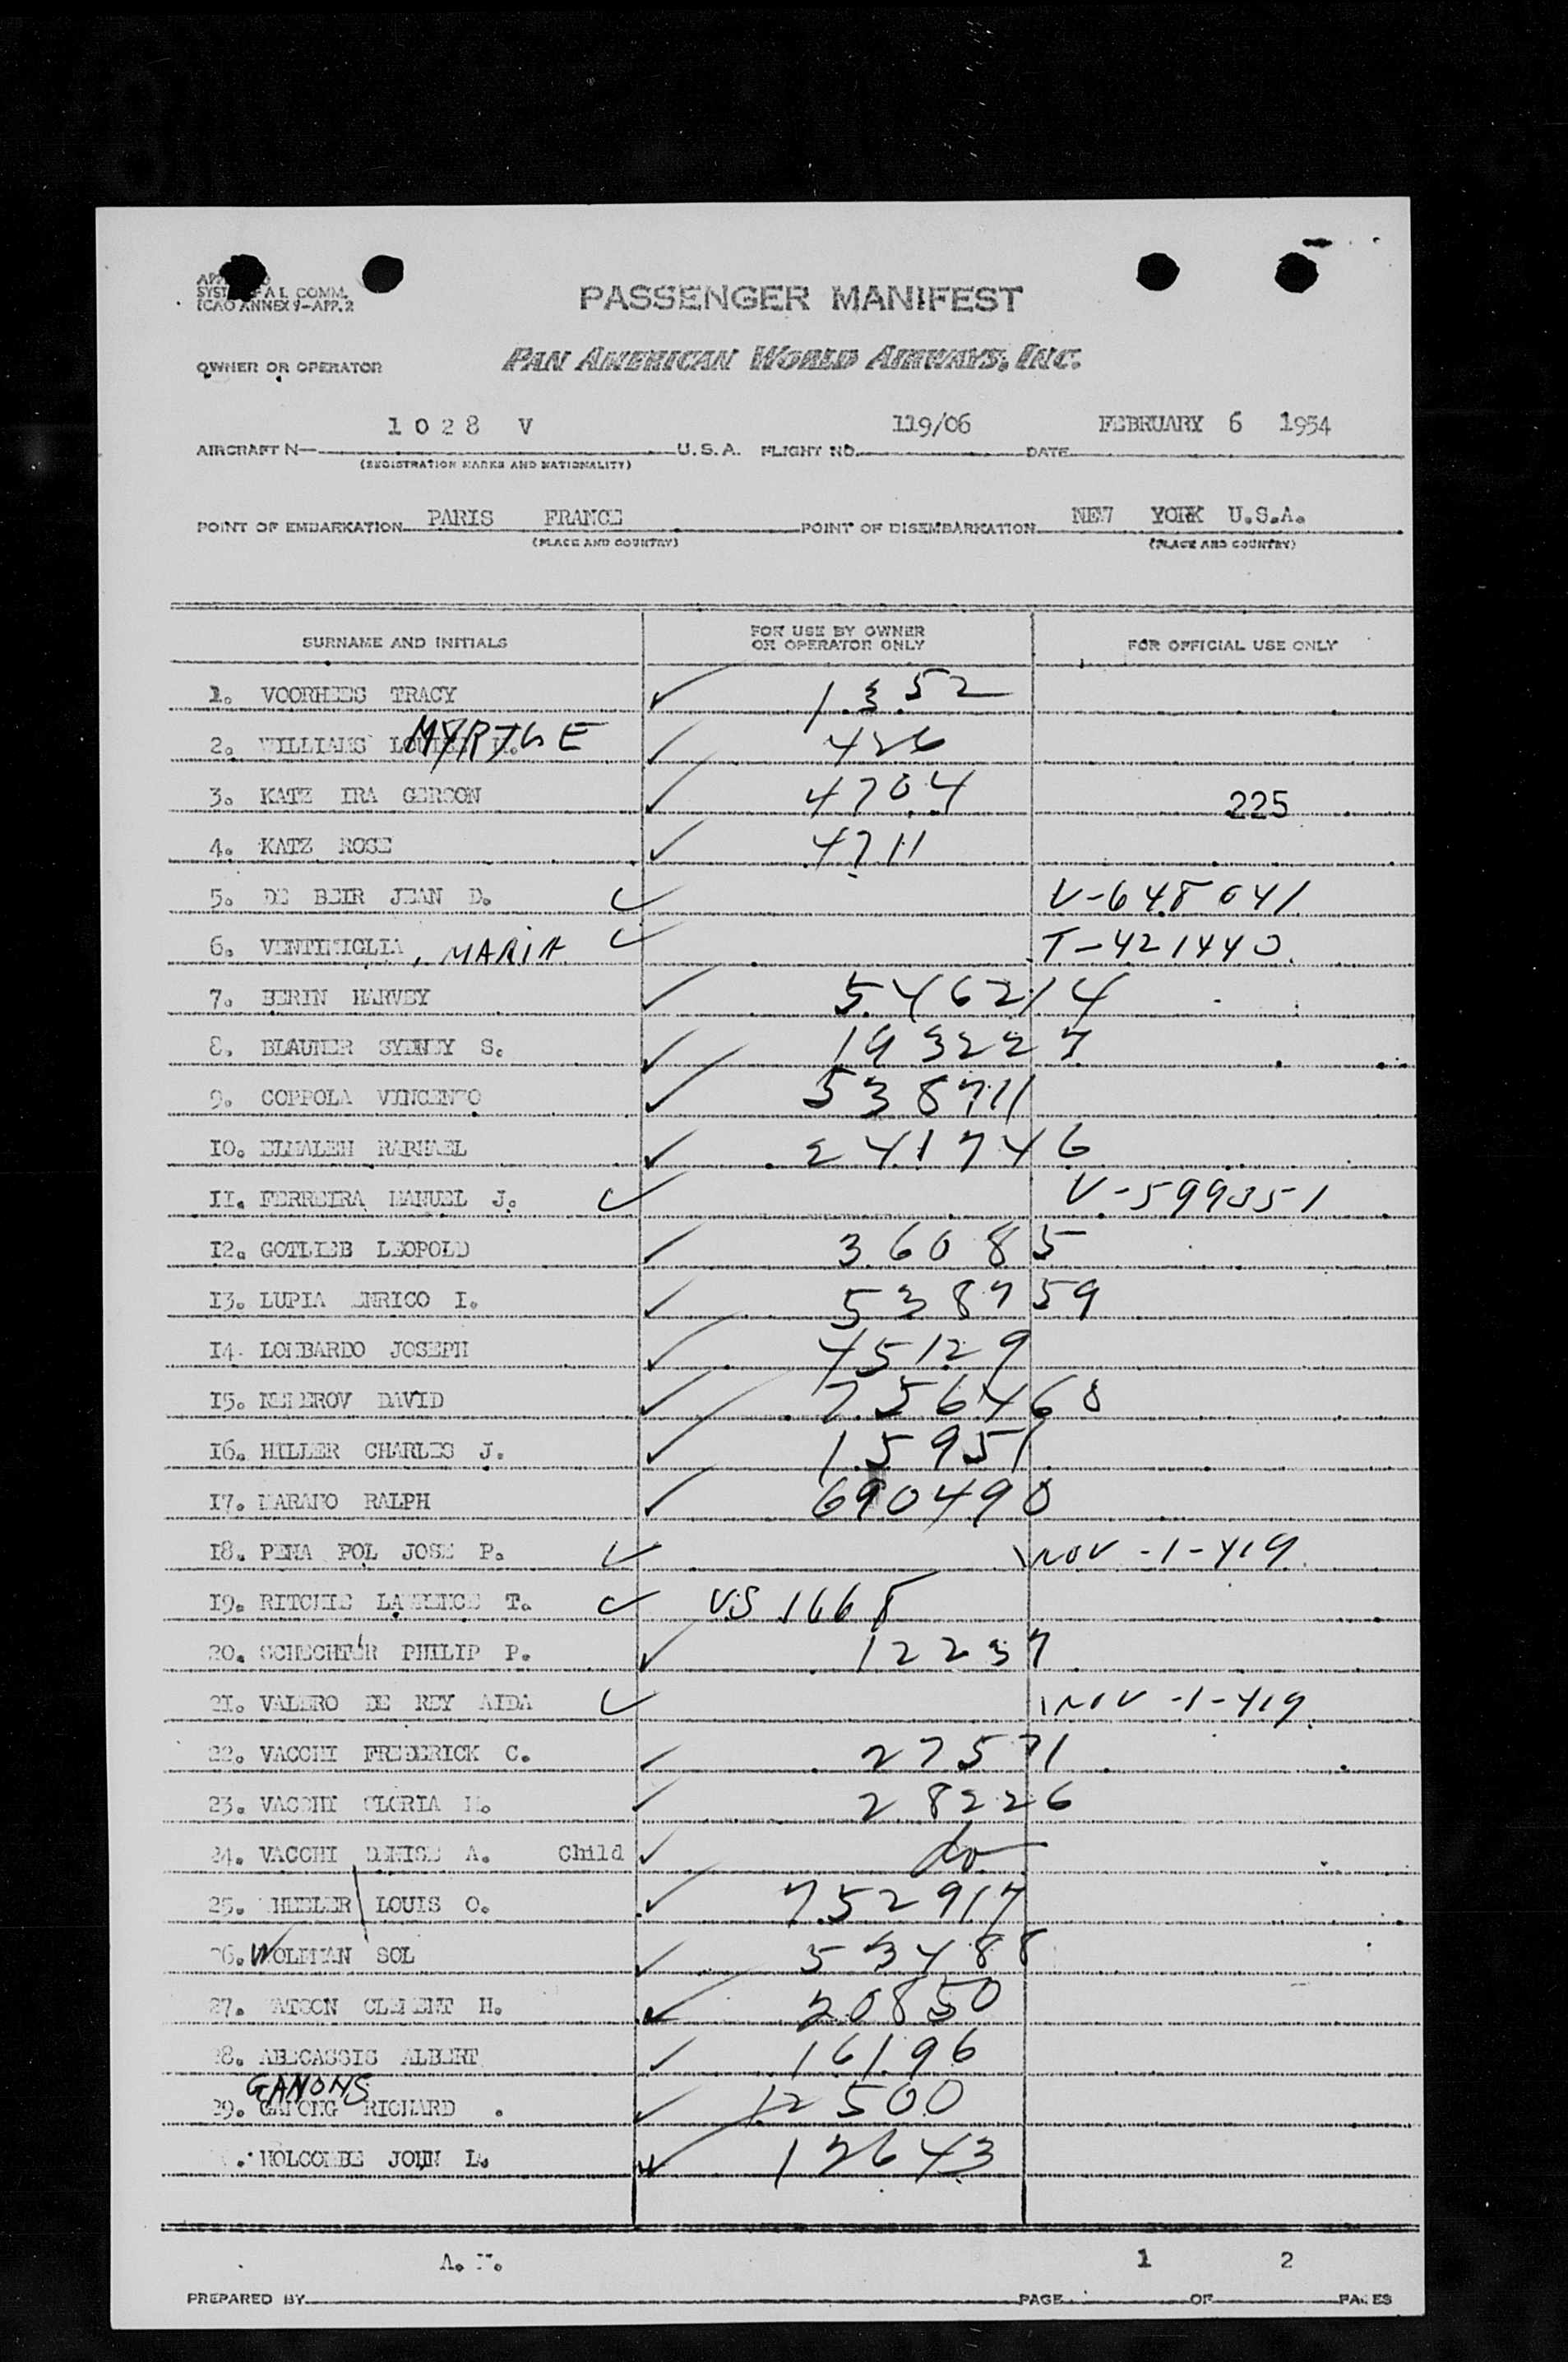 SYST AL COMM.
ICAO ANNEX 9-APP. 2
PASSENGER MANIFEST
OWNER OR OPERATOR PAN AMERICAN WORLD AIRWAYS, INC.
AIRCRAFT N- 1028 V U.S.A. FLIGHT NO. 119/06 DATE FEBRUARY 6 1954
(REGISTRATION MARKS AND NATIONALITY)
POINT OF EMBARKATION PARIS FRANCE POINT OF DISEMBARKATION NEW YORK U.S.A.
(PLACE AND COUNTRY) (PLACE AND COUNTRY)
SURNAME AND INITIALS FOR USE BY OWNER OR OPERATOR ONLY FOR OFFICIAL USE ONLY
1. VOORHEES TRACY ✓ 1352
2. WILLIAMS MYRTLE ✓ 426
3. KATZ IRA GERSON ✓ 4704 225
4. KATZ ROSE ✓ 4711
5. DE BEIR JEAN D. ✓ V-648041
6. VENTIMIGLIA, MARIA ✓ T-421440
7. BERIN HARVEY ✓ 546214
8. BLAUNER SYDNEY S. ✓ 193227
9. COPPOLA VINCENZO ✓ 538711
10. ELMALEH RAPHAEL ✓ 241746
11. FERREIRA MANUEL J. ✓ V-599351
12. GOTLIEB LEOPOLD ✓ 36085
13. LUPIA ENRICO I. ✓ 538759
14. LOMBARDO JOSEPH ✓ 45129
15. NEMEROV DAVID ✓ 756468
16. HILLER CHARLES J. ✓ 15951
17. RALPH ✓ 690490
18. PENA POL JOSE P. ✓ INOV-1-419
19. RITCHIE LAWRENCE T. ✓ VS 1668
20. SCHECHTER PHILIP P. ✓ 12237
21. VALERO DE REY AIDA ✓ INOV-1-419
22. VACCHI FREDERICK C. ✓ 27571
23. VACCHI GLORIA M. ✓ 28226
24. VACCHI DENISE A. Child ✓ do
25. HEELER LOUIS O. ✓ 752917
26. WOLMAN SOL ✓ 53488
27. WATSON CLEMENT H. ✓ 20850
28. ABECASSIS ALBERT ✓ 16196
GANONS
29. RICHARD ✓ 12500
HOLCOMBE JOHN L. ✓ 12643
PREPARED BY PAGE 1 OF 2 PAGES